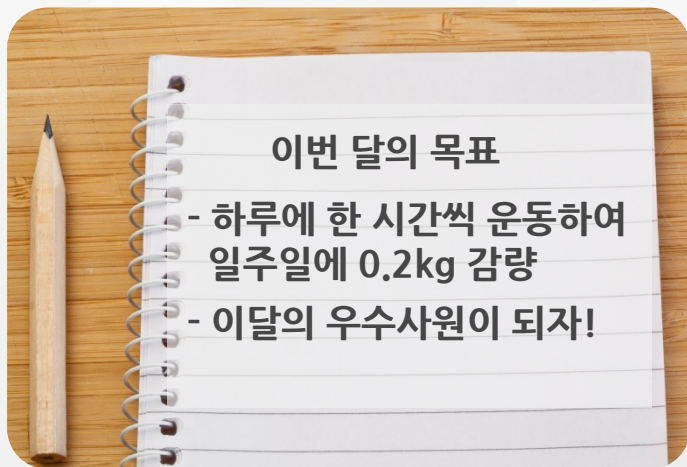 이번 달의 목표
- 하루에 한 시간씩 운동하여
일주일에 0.2kg 감량
- 이달의 우수사원이 되자!